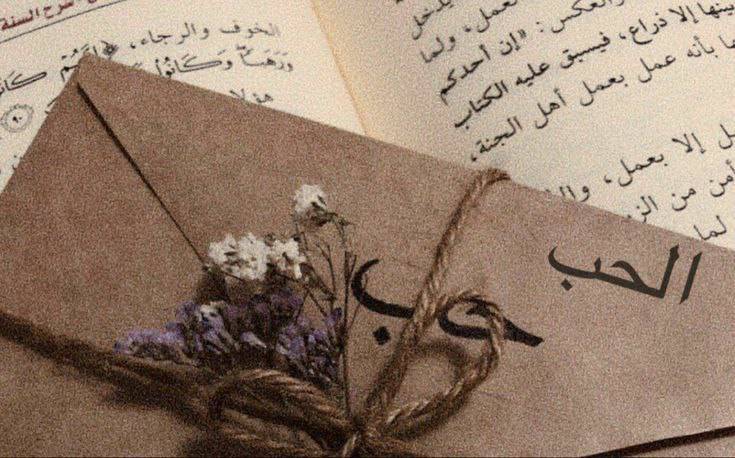 شرح السنة
الخوف والرجاء،
وَرَهَبًا وَكَانُوا
هؤلا
٩٠
يدخل
لعمل، ولما
والعكس: «إن أحدكم
بينها إلا ذراع، فيسبق عليه الكتاب
بأنه عمل بعمل أهل الجنة،
إلا بعمل،
أمن من
لما
حب
الحب